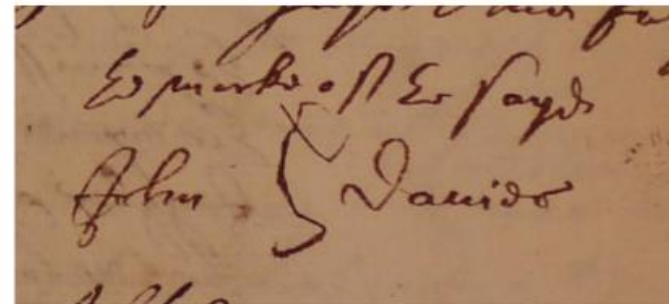 The marke of the sayde
John Davies